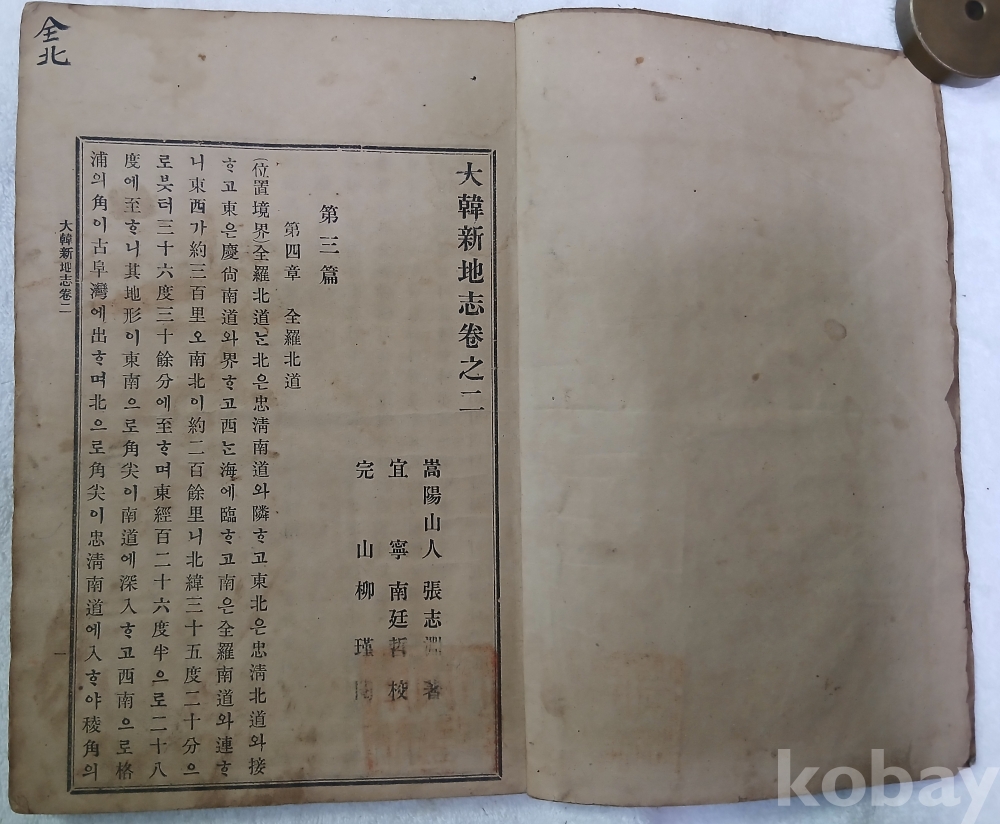 大韓新地志卷之二
嵩陽山人 張志淵 著
宜寧 南廷哲 校
完山 柳瑾
第三篇
第四章 全羅北道
(位置境界)全羅北道ᄂᆞᆫ北은忠淸南道와隣ᄒᆞ고東北은忠淸北道와接
ᄒᆞ고東은慶尙南道와界ᄒᆞ고西ᄂᆞᆫ海에臨ᄒᆞ고南은全羅南道와連ᄒᆞ
니東西가約三百里오南北이約二百餘里니北緯三十五度二十分으
로븟터三十六度三十餘分에至ᄒᆞ며東經百二十六度半으로二十八
度에至ᄒᆞ니其地形이東南으로角尖이南道에深入ᄒᆞ고西南으로格
浦의角이古阜灣에出ᄒᆞ며北으로角尖이忠淸南道에入ᄒᆞ야稜角의
大韓新地志卷二
一
全北
kobay